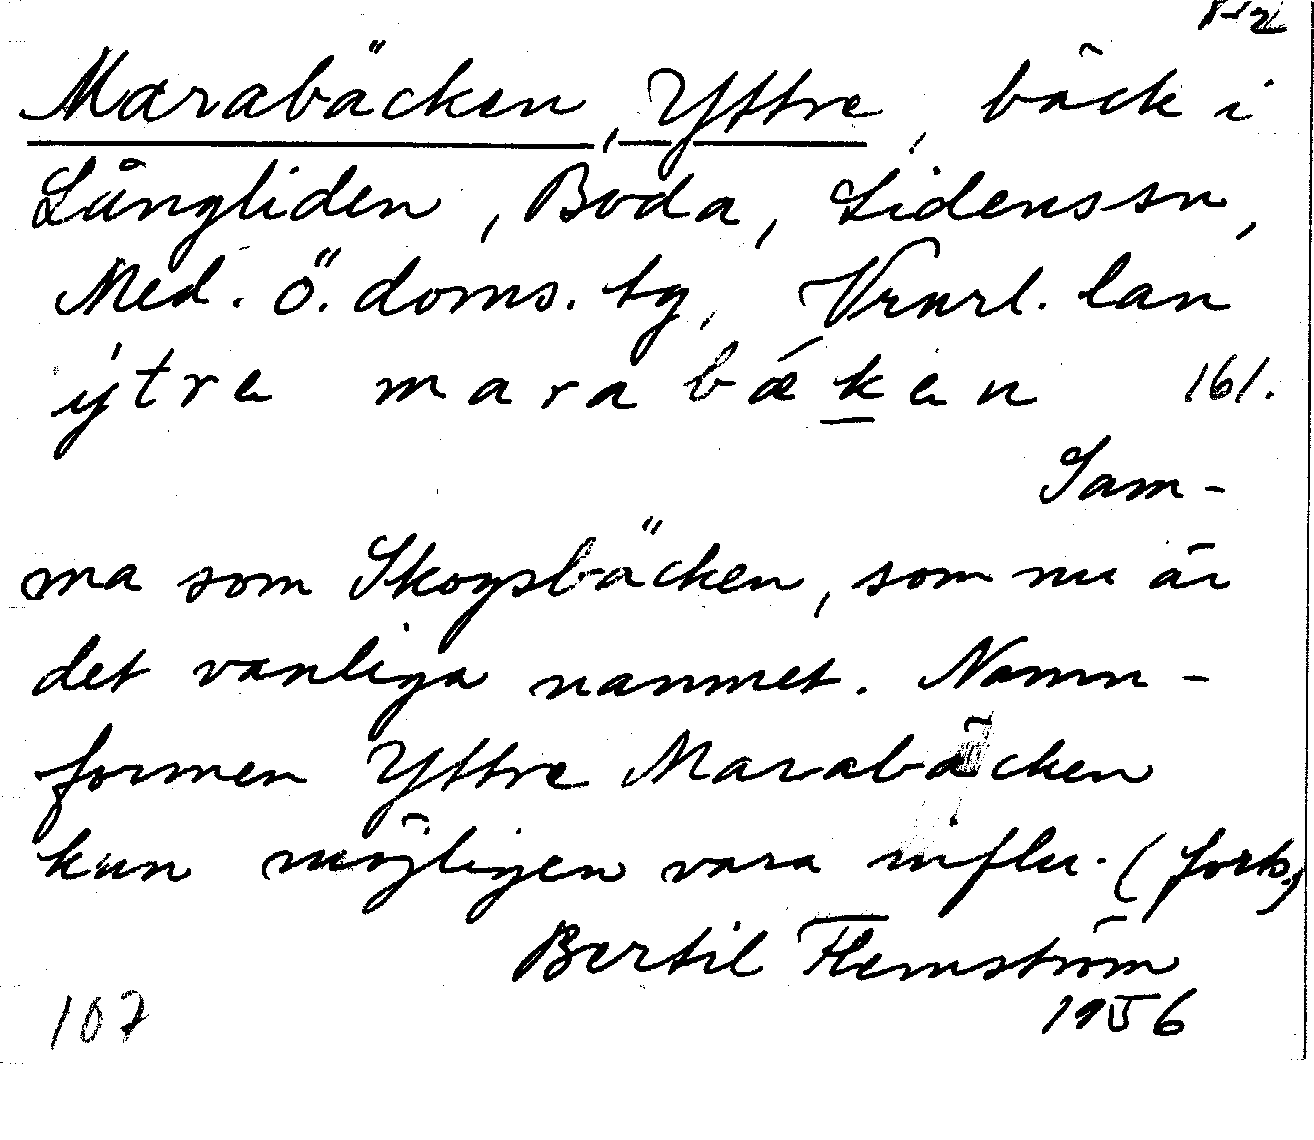 Marabäcken, Yttre, bäck i
Långliden, Boda, Lidens sn,
Med. ö. doms. tg, Vrnrl. län
ýtre marabǽken 161.
Sam-
ma som Skogsbäcken, som nu är
det vanliga namnet. Namn-
formen Yttre Marabäcken
kan möjligen vara influ. (forts.)
Bertil Flemström
1956
107